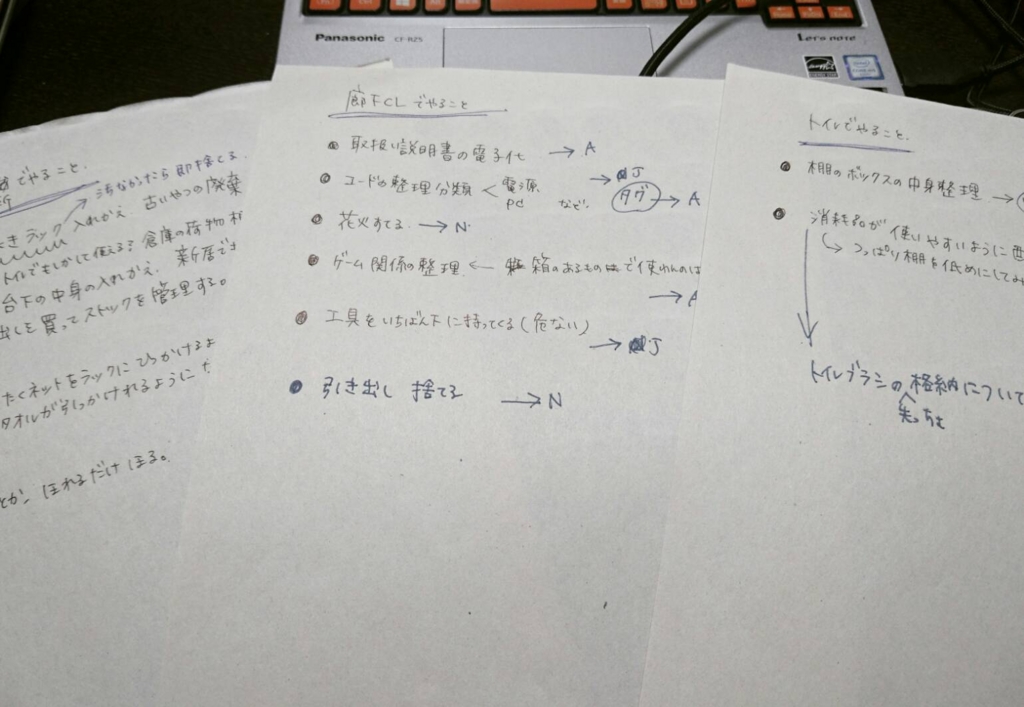 Panasonic CF-RZ5
Let's note
でやること.
汚なかったら即捨てる.
ラック 入れかえ 古いやつの廃棄
トイレでもしかして使える? 倉庫の荷物
台下の中身の入れかえ. 新居で
出しを買ってストックを管理する。
たくネットをラックにひっかけるよ
タオルがひっかけれるように
とか、ほれるだけほる。
廊下CLでやること
● 取扱い説明書の電子化 → A
● コードの整理分類 < 電源 PC など. → J タグ → A
● 花火すてる. → N.
● ゲーム関係の整理 ← 箱のあるものは で使わんのは
→ A
● 工具をいちばん下に持ってくる(危ない)
→ J
● 引き出し 捨てる → N
トイレでやること.
● 棚のボックスの中身整理 →
● 消耗品が使いやすいように
↳ つっぱり棚を低めにしてみ
トイレブラシの格納について
先っちょ